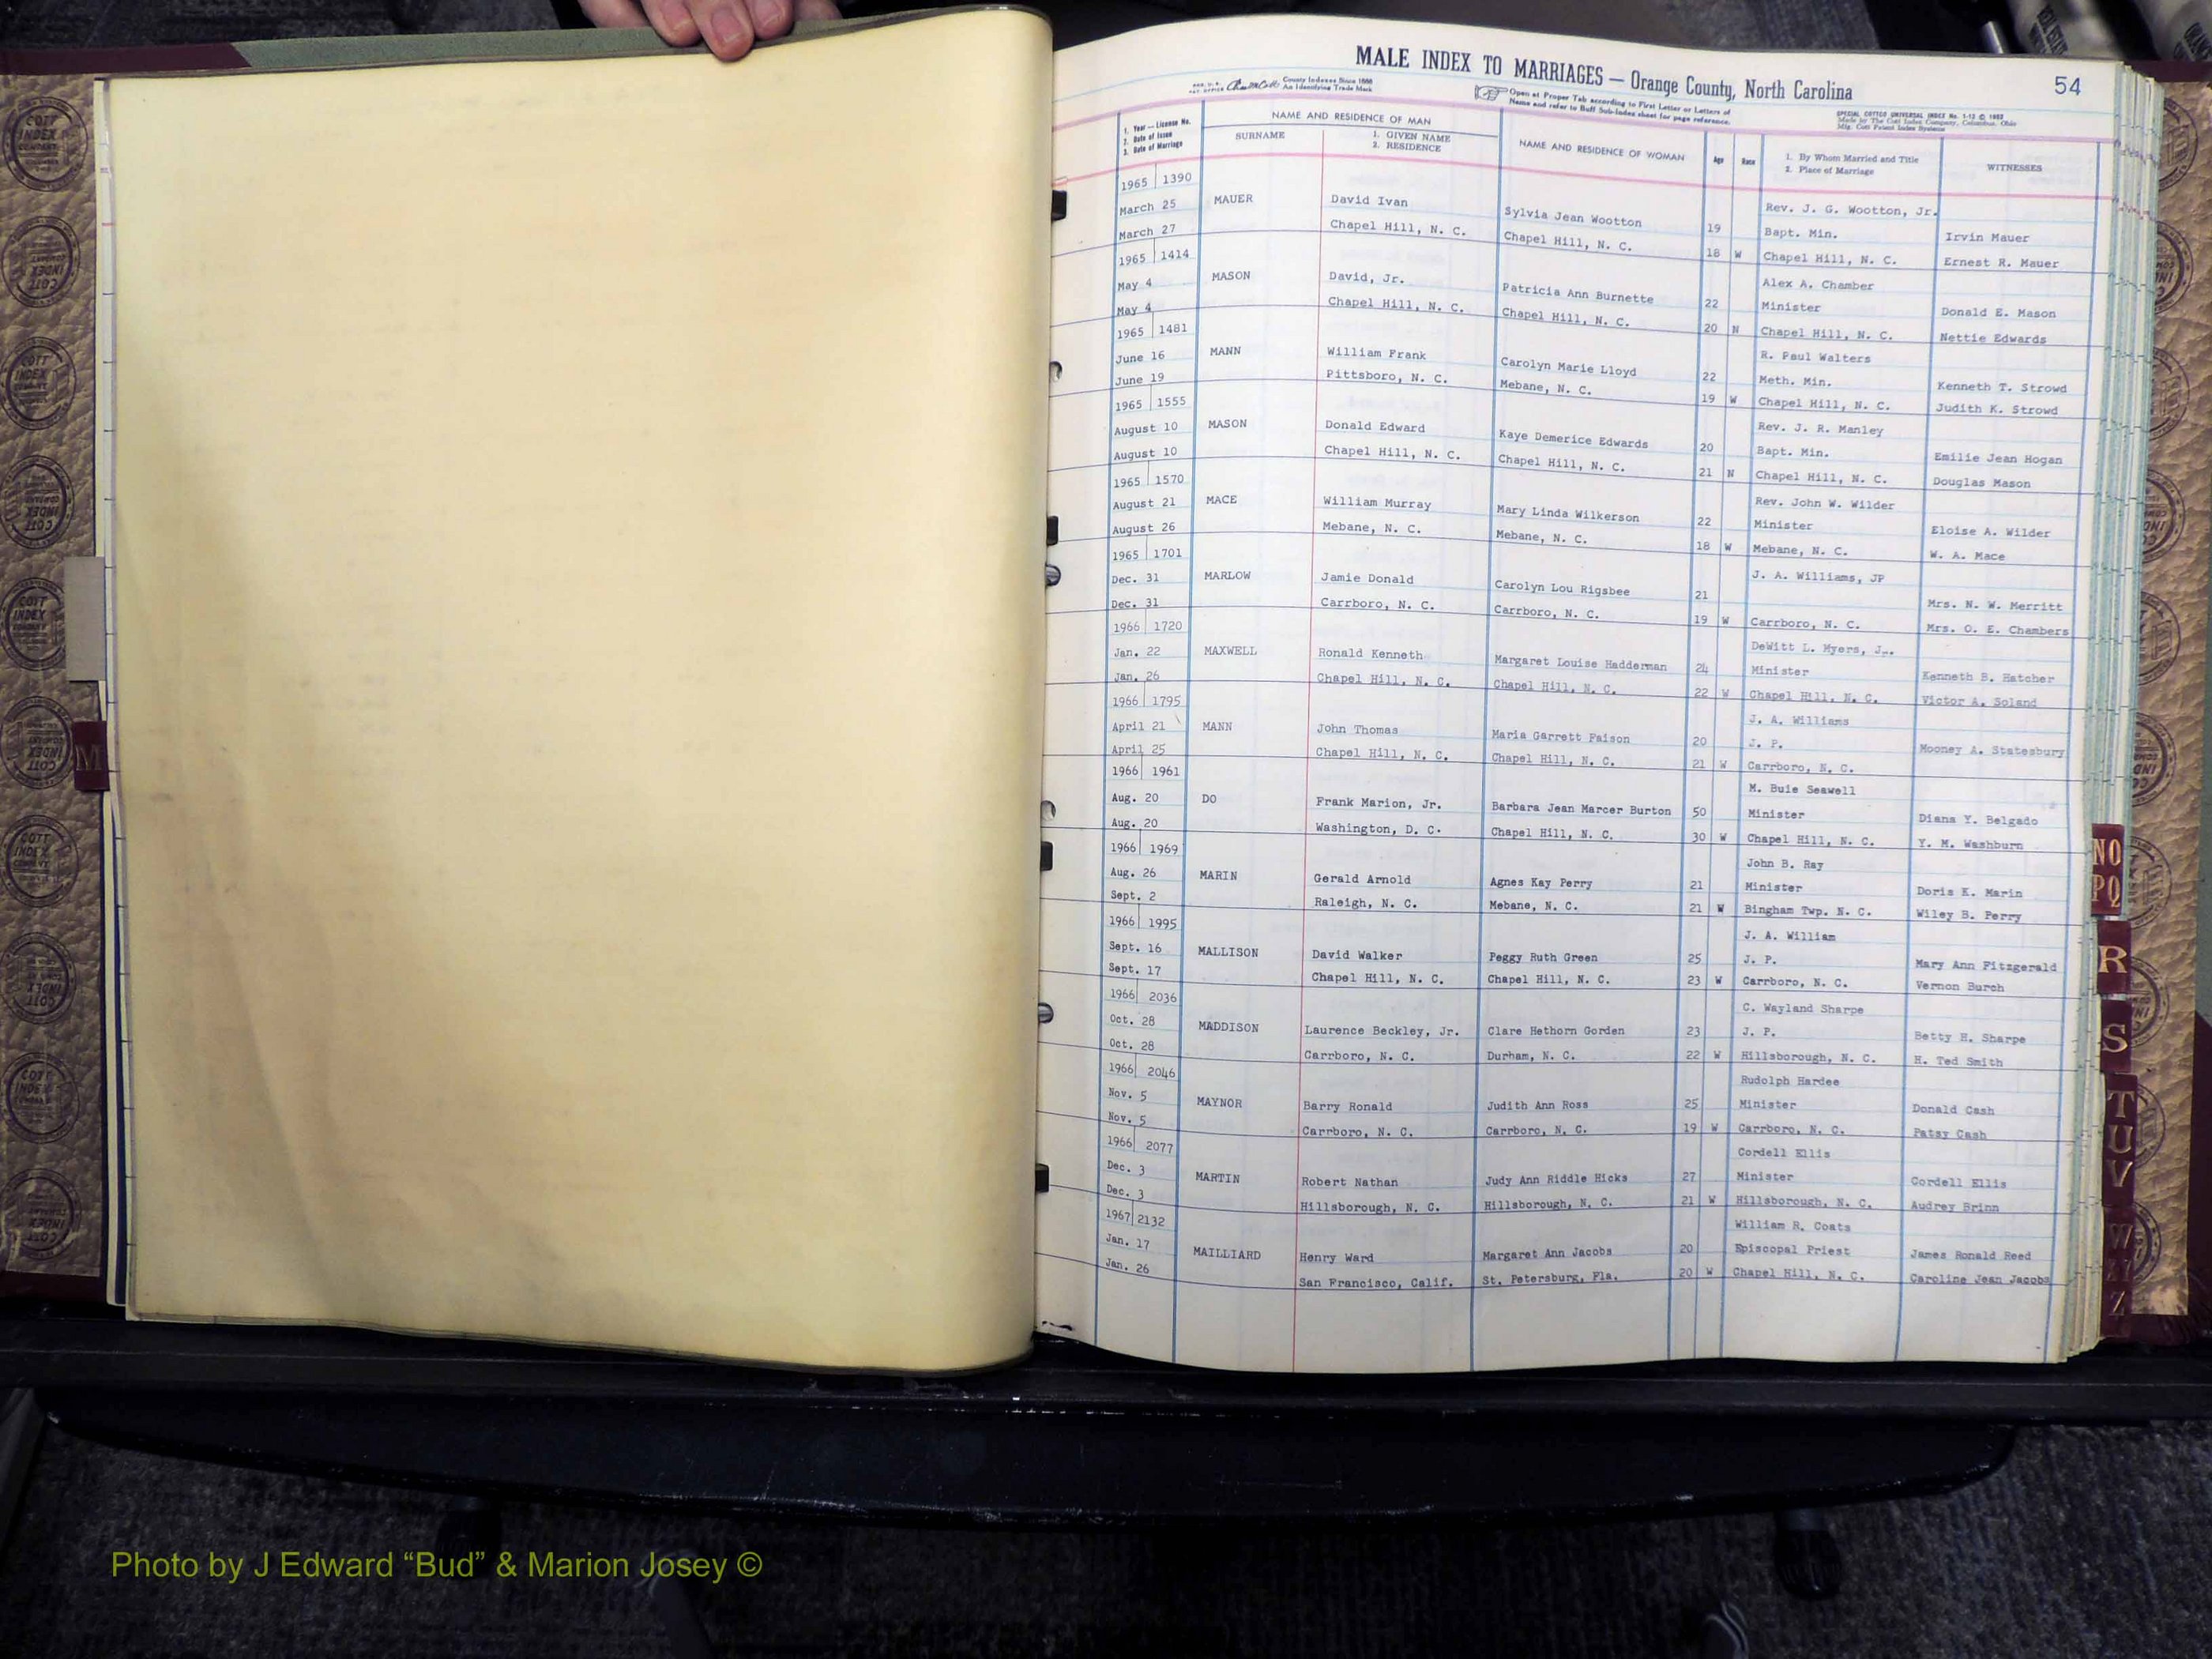 MALE INDEX TO MARRIAGES — Orange County, North Carolina
54
County Indexes Since 1888
An Identifying Trade Mark
Open at Proper Tab according to First Letter or Letters of
Name and refer to Buff Sub-Index sheet for page reference.
1. Year — License No.
2. Date of Issue
3. Date of Marriage
NAME AND RESIDENCE OF MAN
SURNAME
1. GIVEN NAME
2. RESIDENCE
NAME AND RESIDENCE OF WOMAN
Age
Race
1. By Whom Married and Title
2. Place of Marriage
WITNESSES
1965 1390
March 25 MAUER David Ivan Sylvia Jean Wootton 19 Rev. J. G. Wootton, Jr. Bapt. Min. Irvin Mauer
March 27 Chapel Hill, N. C. Chapel Hill, N. C. 18 W Chapel Hill, N. C. Ernest R. Mauer
1965 1414 Alex A. Chamber
May 4 MASON David, Jr. Patricia Ann Burnette 22 Minister Donald E. Mason
May 4 Chapel Hill, N. C. Chapel Hill, N. C. 20 N Chapel Hill, N. C. Nettie Edwards
1965 1481 R. Paul Walters
June 16 MANN William Frank Carolyn Marie Lloyd 22 Meth. Min. Kenneth T. Strowd
June 19 Pittsboro, N. C. Mebane, N. C. 19 W Chapel Hill, N. C. Judith K. Strowd
1965 1555 Rev. J. R. Manley
August 10 MASON Donald Edward Kaye Demerice Edwards 20 Bapt. Min. Emilie Jean Hogan
August 10 Chapel Hill, N. C. Chapel Hill, N. C. 21 N Chapel Hill, N. C. Douglas Mason
1965 1570 Rev. John W. Wilder
August 21 MACE William Murray Mary Linda Wilkerson 22 Minister Eloise A. Wilder
August 26 Mebane, N. C. Mebane, N. C. 18 W Mebane, N. C. W. A. Mace
1965 1701 J. A. Williams, JP
Dec. 31 MARLOW Jamie Donald Carolyn Lou Rigsbee 21 Mrs. N. W. Merritt
Dec. 31 Carrboro, N. C. Carrboro, N. C. 19 W Carrboro, N. C. Mrs. O. E. Chambers
1966 1720 DeWitt L. Myers,
Jan. 22 MAXWELL Ronald Kenneth Margaret Louise Hadderman 24 Minister Kenneth B. Hatcher
Jan. 26 Chapel Hill, N. C. Chapel Hill, N. C. 22 W Chapel Hill, N. C. Victor A. Soland
1966 1795 J. A. Williams
April 21 MANN John Thomas Maria Garrett Faison 20 J. P. Mooney A. Statesbury
April 25 Chapel Hill, N. C. Chapel Hill, N. C. 21 W Carrboro, N. C.
1966 1961 M. Buie Seawell
Aug. 20 DO Frank Marion, Jr. Barbara Jean Marcer Burton 50 Minister Diana Y. Belgado
Aug. 20 Washington, D. C. Chapel Hill, N. C. 30 W Chapel Hill, N. C. Y. M. Washburn
1966 1969 John B. Ray
Aug. 26 MARIN Gerald Arnold Agnes Kay Perry 21 Minister Doris K. Marin
Sept. 2 Raleigh, N. C. Mebane, N. C. 21 W Bingham Twp. N. C. Wiley B. Perry
1966 1995 J. A. William
Sept. 16 MALLISON David Walker Peggy Ruth Green 25 J. P. Mary Ann Fitzgerald
Sept. 17 Chapel Hill, N. C. Chapel Hill, N. C. 23 W Carrboro, N. C. Vernon Burch
1966 2036 C. Wayland Sharpe
Oct. 28 MADDISON Laurence Beckley, Jr. Clare Hethorn Gorden 23 J. P. Betty H. Sharpe
Oct. 28 Carrboro, N. C. Durham, N. C. 22 W Hillsborough, N. C. H. Ted Smith
1966 2046 Rudolph Hardee
Nov. 5 MAYNOR Barry Ronald Judith Ann Ross 25 Minister Donald Cash
Nov. 5 Carrboro, N. C. Carrboro, N. C. 19 W Carrboro, N. C. Patsy Cash
1966 2077 Cordell Ellis
Dec. 3 MARTIN Robert Nathan Judy Ann Riddle Hicks 27 Minister Cordell Ellis
Dec. 3 Hillsborough, N. C. Hillsborough, N. C. 21 W Hillsborough, N. C. Audrey Brinn
1967 2132 William R. Coats
Jan. 17 MAILLIARD Henry Ward Margaret Ann Jacobs 20 Episcopal Priest James Ronald Reed
Jan. 26 San Francisco, Calif. St. Petersburg, Fla. 20 W Chapel Hill, N. C. Caroline Jean Jacobs
M
NO
PQ
R
S
T
U
V
W
Z
Photo by J Edward “Bud” & Marion Josey ©